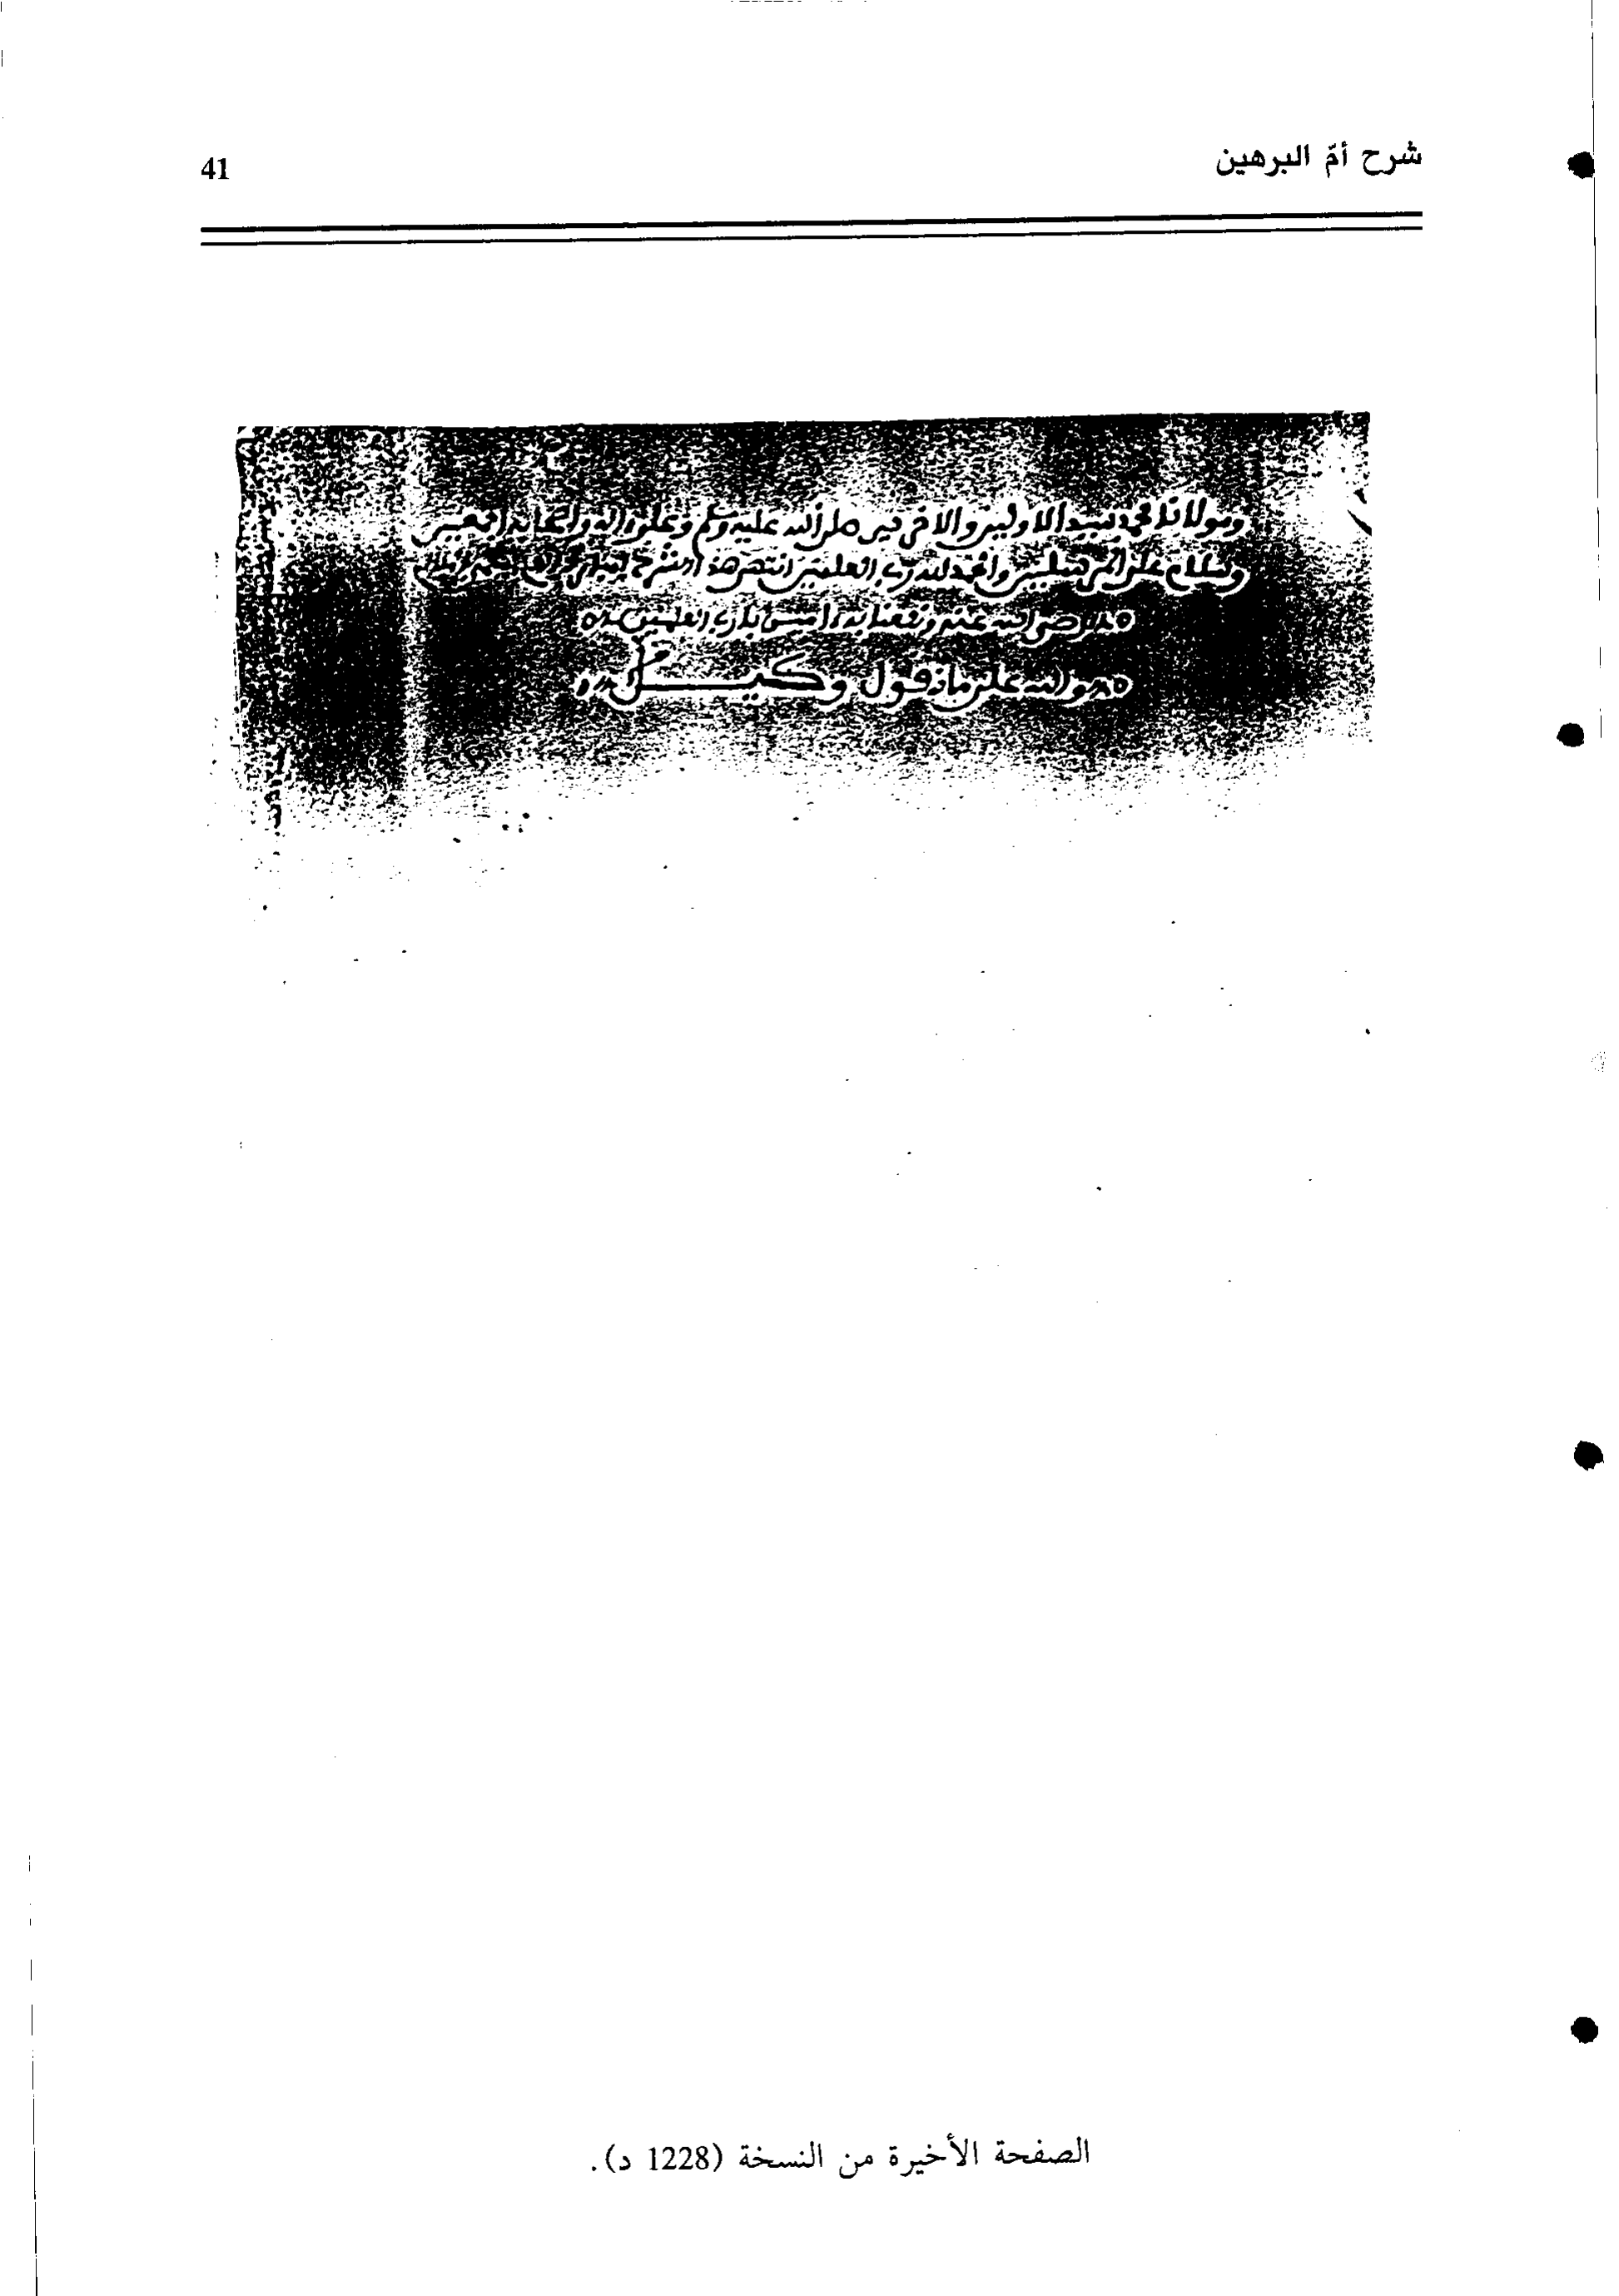 شرح أمّ البرهين
41
ومولانا محمد سيد الاولين والاخرين صلى الله عليه وسلم وعلى اله واصحابه اجمعين
وسلام على المرسلين والحمد لله رب العلمين انتهى هذا الشرح
رضى الله عنه ونفعنا به امين يا رب العلمين
والله على ما نقول وكيل
الصفحة الأخيرة من النسخة (1228 د).